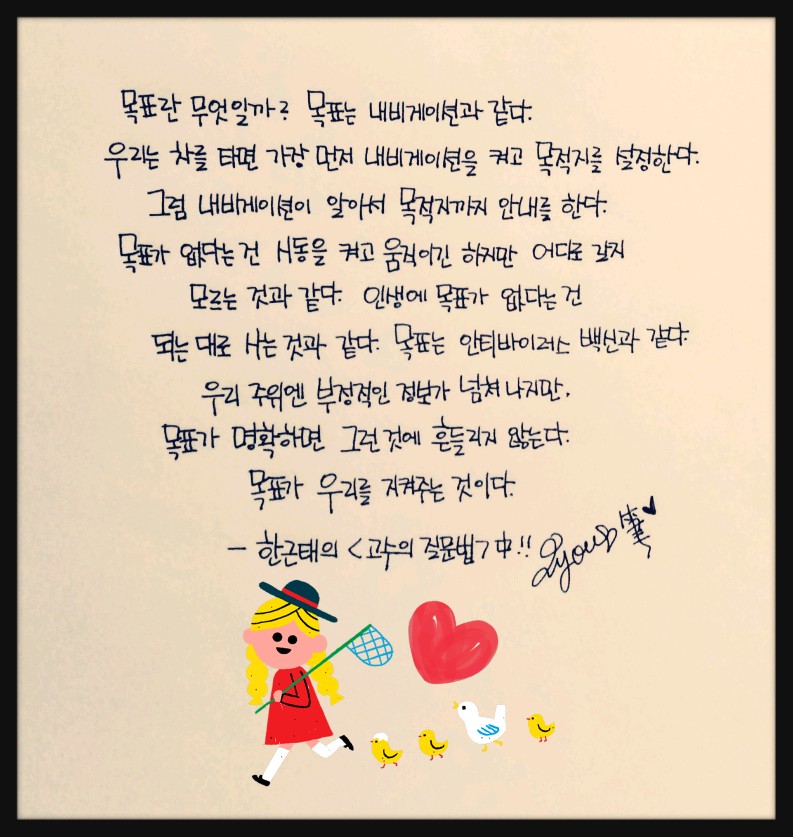 목표란 무엇일까? 목표는 내비게이션과 같다.
우리는 차를 타면 가장 먼저 내비게이션을 켜고 목적지를 설정한다.
그럼 내비게이션이 알아서 목적지까지 안내를 한다.
목표가 없다는 건 시동을 켜고 움직이긴 하지만 어디로 갈지
모르는 것과 같다. 인생에 목표가 없다는 건
되는 대로 사는 것과 같다. 목표는 안티바이러스 백신과 같다.
우리 주위엔 부정적인 정보가 넘쳐나지만,
목표가 명확하면 그런 것에 흔들리지 않는다.
목표가 우리를 지켜주는 것이다.
- 한근태의 <고수의 질문법> 中!!